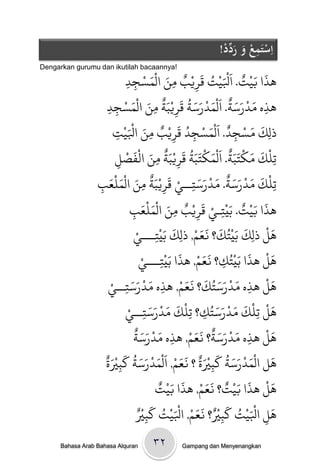 اِسْتَمِعْ وَ رَدِّدْ!
Dengarkan gurumu dan ikutilah bacaannya!
هذَا بَيْتٌ. اَلْبَيْتُ قَرِيْبٌ مِنَ الْمَسْجِدِ
هذِه مَدْرَسَةٌ. اَلْمَدْرَسَةُ قَرِيْبَةٌ مِنَ الْمَسْجِدِ
ذلِكَ مَسْجِدٌ. اَلْمَسْجِدُ قَرِيْبٌ مِنَ الْبَيْتِ
تِلْكَ مَكْتَبَةٌ. اَلْمَكْتَبَةُ قَرِيْبَةٌ مِنَ الْفَصْلِ
تِلْكَ مَدْرَسَةٌ. مَدْرَسَتِـــيْ قَرِيْبَةٌ مِنَ الْمَلْعَبِ
هذَا بَيْتٌ. بَيْتِـيْ قَرِيْبٌ مِنَ الْمَلْعَبِ
هَلْ ذلِكَ بَيْتُكَ؟ نَعَمْ, ذلِكَ بَيْتِـــــيْ
هَلْ هذَا بَيْتُكِ؟ نَعَمْ, هذَا بَيْتِـــــيْ
هَلْ هذِه مَدْرَسَتُكَ؟ نَعَمْ, هذِه مَدْرَسَتِـــيْ
هَلْ تِلْكَ مَدْرَسَتُكِ؟ تِلْكَ مَدْرَسَتِـــيْ
هَلْ هذِه مَدْرَسَةٌ؟ نَعَمْ, هذِه مَدْرَسَةٌ
هَل الْمَدْرَسَةُ كَبِيْرَةٌ ؟ نَعَمْ, اَلْمَدْرَسَةُ كَبِيْرَةٌ
هَلْ هذَا بَيْتٌ؟ نَعَمْ, هذَا بَيْتٌ
هَلِ الْبَيْتُ كَبِيْرٌ؟ نَعَمْ, الْبَيْتُ كَبِيْرٌ
Bahasa Arab Bahasa Alquran ٣٢ Gampang dan Menyenangkan